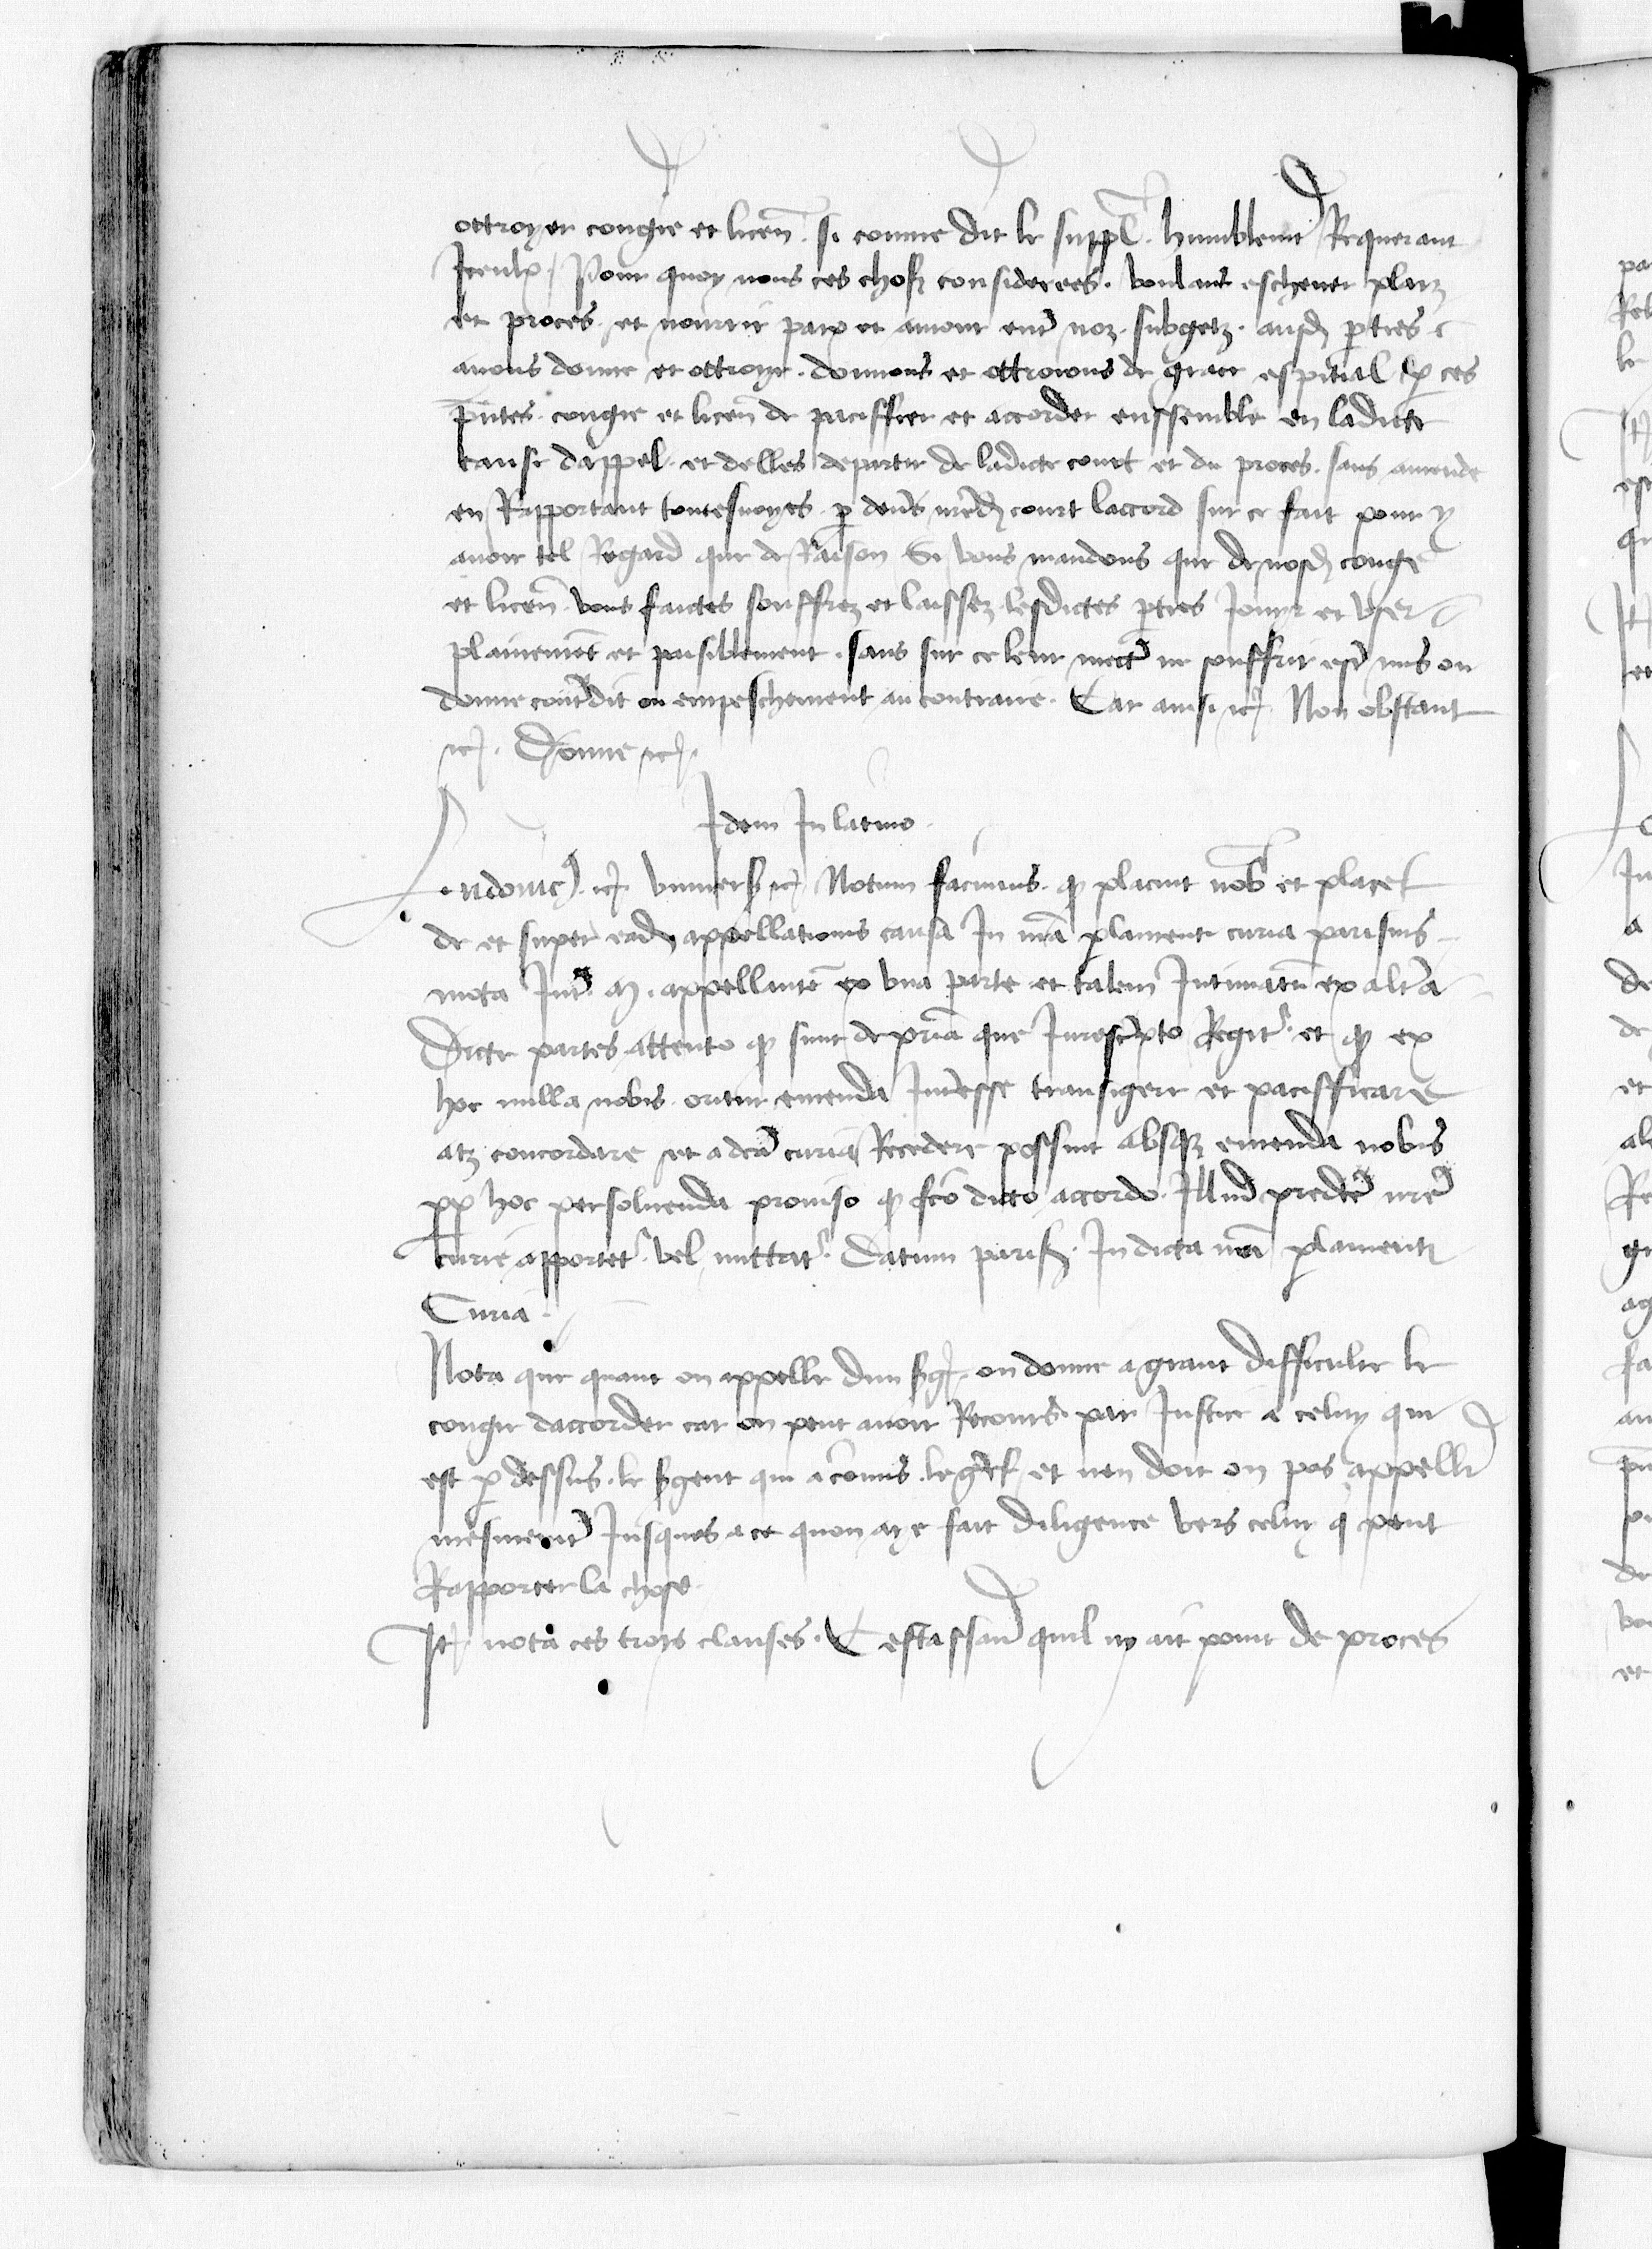 ottroyer congie et licen̄. si comme dit le suppl̄. humblemt Requerant
Iceulx. Pour quoy nous ces choses considerees. voulans eschever plaiz
et proces. et nourrir paix et amour entr̄ noz. subgetz. ausd. p̄ties
avons donne et ottroye. donnons et ottroions de grace espicial p̄ ces
p̄ntes. congie et licen̄ de pacifffier et accorder enssemble en ladicte
cause dappel. et delles departir de ladicte court et du proces. sans amende
en Rapportant toutesuoyes p̄ deuers nr̄ed. court laccord sur ce fait pour y
auoir tel Regard que de Raison Si vous mandons que de nosd. congie
et licen̄. vous faictes souffrez et laissez lesdictes p̄ties Jouyr et vser
plainemēt et paisiblement. sans sur ce leur mectr̄ ne souffrir estr̄ mis ou
donne contr̄dit ou empeschement au contraire. Car ainsi etc. Non obstant
etc. Donne etc.
Idem In latino
Ludouic9. etc. vniuersis etc. Notum facimus. qȝ placuit nob̄ et placet
de et super ead. appellationis causa In nr̄a p̄lamenti curia parisius
mota Int̄. A. appellantē ex vna parte et talem Intimatū ex altr̄a
Dicte partes attento qȝ sunt de pr̄ia que Jurescr̄ipto Regitr̄. et qȝ ex
hoc nulla nobis oritur emenda Int̄esse transigere et pacifficare
atqȝ concordare et a dc̄a curia Recedere possint absqȝ emenda nobis
pp̄ hoc persoluenda prouiso qȝ fc̄o dicto accordo. Illud predc̄te nr̄e
curie apportetr̄. vel mittatr̄. Datum paris. In dicta nr̄a p̄lamenti
Curia.
Nota que quant on appelle dun sgt. on donne a grant difficulte le
congie daccorder car on peut auoir Recours par Justice a celuy qui
est p̄ dessus. le sgent qui a cōmis. le grief et nen doit on pas appeller
mesment̄ Jusques a ce quon aye fait diligence vers celuy q̄ peut
Rapporter la chose
It. nota ces trois clauses. Cestassau̅ quil ny ait point de proces